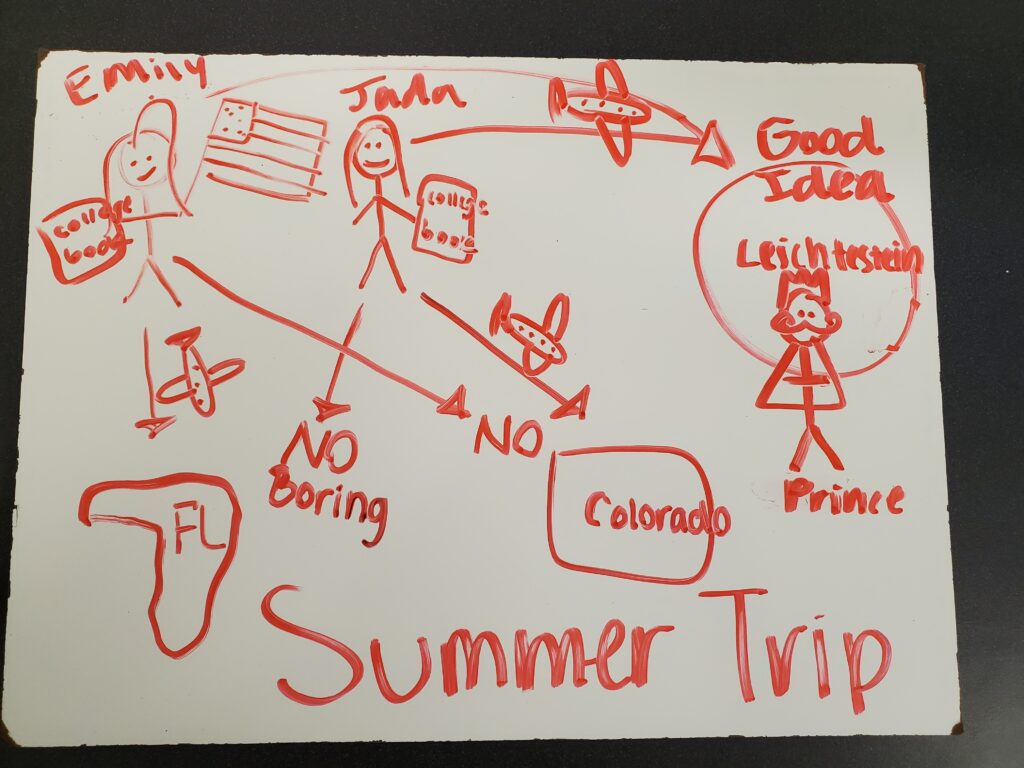 Emily
Jada
Good
Idea
college
book
college
book
Leichtestein
NO
Boring
NO
Prince
FL
Colorado
Summer Trip